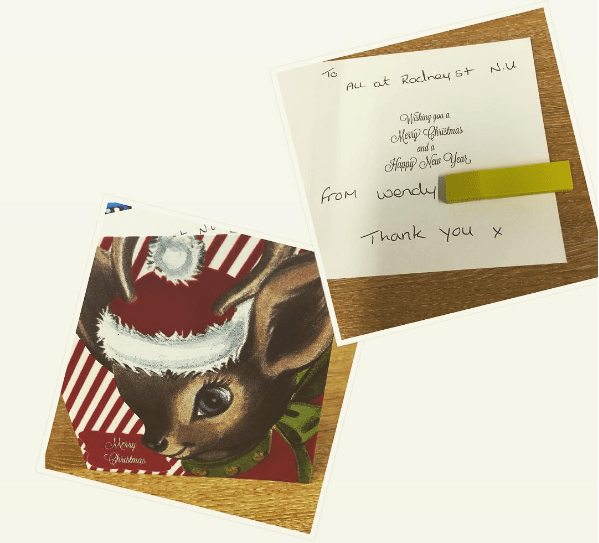 To
ALL at Rodney St N.U
Wishing you a
Merry Christmas
and a
Happy New Year
from wendy
Thank you x
N.U
Merry
Christmas